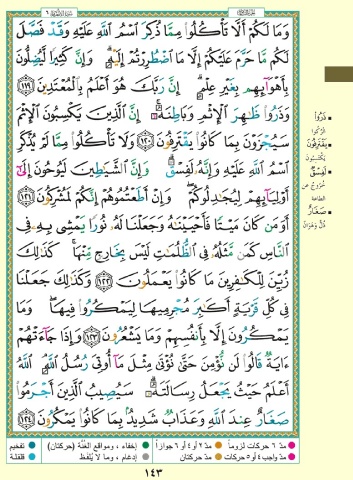 وَمَا لَكُمْ أَلَّا تَأْكُلُوا۟ مِمَّا ذُكِرَ ٱسْمُ ٱللَّهِ عَلَيْهِ وَقَدْ فَصَّلَ
لَكُم مَّا حَرَّمَ عَلَيْكُمْ إِلَّا مَا ٱضْطُرِرْتُمْ إِلَيْهِ ۗ وَإِنَّ كَثِيرًا لَّيُضِلُّونَ
بِأَهْوَآئِهِم بِغَيْرِ عِلْمٍ ۗ إِنَّ رَبَّكَ هُوَ أَعْلَمُ بِٱلْمُعْتَدِينَ ١١٩
وَذَرُوا۟ ظَٰهِرَ ٱلْإِثْمِ وَبَاطِنَهُۥٓ ۚ إِنَّ ٱلَّذِينَ يَكْسِبُونَ ٱلْإِثْمَ
سَيُجْزَوْنَ بِمَا كَانُوا۟ يَقْتَرِفُونَ ١٢٠ وَلَا تَأْكُلُوا۟ مِمَّا لَمْ يُذْكَرِ
ٱسْمُ ٱللَّهِ عَلَيْهِ وَإِنَّهُۥ لَفِسْقٌ ۗ وَإِنَّ ٱلشَّيَٰطِينَ لَيُوحُونَ إِلَىٰٓ
أَوْلِيَآئِهِمْ لِيُجَٰدِلُوكُمْ ۖ وَإِنْ أَطَعْتُمُوهُمْ إِنَّكُمْ لَمُشْرِكُونَ ١٢١
أَوَمَن كَانَ مَيْتًا فَأَحْيَيْنَٰهُ وَجَعَلْنَا لَهُۥ نُورًا يَمْشِى بِهِۦ فِى
ٱلنَّاسِ كَمَن مَّثَلُهُۥ فِى ٱلظُّلُمَٰتِ لَيْسَ بِخَارِجٍ مِّنْهَا ۚ كَذَٰلِكَ
زُيِّنَ لِلْكَٰفِرِينَ مَا كَانُوا۟ يَعْمَلُونَ ١٢٢ وَكَذَٰلِكَ جَعَلْنَا
فِى كُلِّ قَرْيَةٍ أَكَٰبِرَ مُجْرِمِيهَا لِيَمْكُرُوا۟ فِيهَا ۖ وَمَا
يَمْكُرُونَ إِلَّا بِأَنفُسِهِمْ وَمَا يَشْعُرُونَ ١٢٣ وَإِذَا جَآءَتْهُمْ
ءَايَةٌ قَالُوا۟ لَن نُّؤْمِنَ حَتَّىٰ نُؤْتَىٰ مِثْلَ مَآ أُوتِىَ رُسُلُ ٱللَّهِ ۘ ٱللَّهُ
أَعْلَمُ حَيْثُ يَجْعَلُ رِسَالَتَهُۥ ۗ سَيُصِيبُ ٱلَّذِينَ أَجْرَمُوا۟
صَغَارٌ عِندَ ٱللَّهِ وَعَذَابٌ شَدِيدٌۢ بِمَا كَانُوا۟ يَمْكُرُونَ ١٢٤
ذَرُوا
اتركوا
يَقْتَرِفُونَ
يكتسبون
لَفِسْقٌ
خروج عن
الطاعة
صَغَارٌ
ذلّ وهوان
مدّ ٦ حركات لزوماً
مدّ ٢ أو ٤ أو ٦ جوازاً
إخفاء، ومواقع الغُنَّة (حركتان)
تفخيم
مدّ واجب ٤ أو ٥ حركات
مدّ حركتان
إدغام، وما لا يُلفَظ
قلقلة
١٤٣